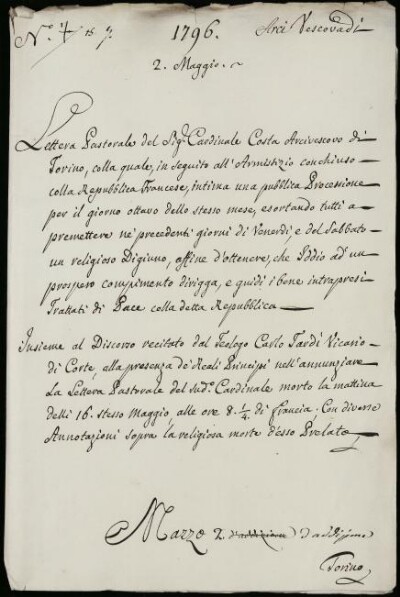 1796. Arci Vescovadi
2. Maggio.
Lettera Pastorale del Sigr Cardinale Costa Arcivescovo di
Torino, colla quale, in seguito all'Armistizio conchiuso
colla Repubblica Francese, intima una pubblica Processione
per il giorno ottavo dello stesso mese, esortando tutti a
premettere ne' precedenti giorni di Venerdì, e del Sabbato
un religioso Digiuno, affine d'ottenere, che Iddio ad' un
prospero compimento dirigga, e guidi i bene intrapresi
Trattati di Pace colla detta Repubblica
Insieme al Discorso recitato dal Teologo Carlo Tardi Vicario
di Corte, alla presenza de' Reali Principi nell'annunziare
La Lettera Pastorale del sudo Cardinale morto la mattina
delli 16. stesso Maggio, alle ore 8. 1/4 di francia; Con diverse
Annotazioni sopra la religiosa morte d'esso Prelato
Mazzo 2. d'addizione
Torino